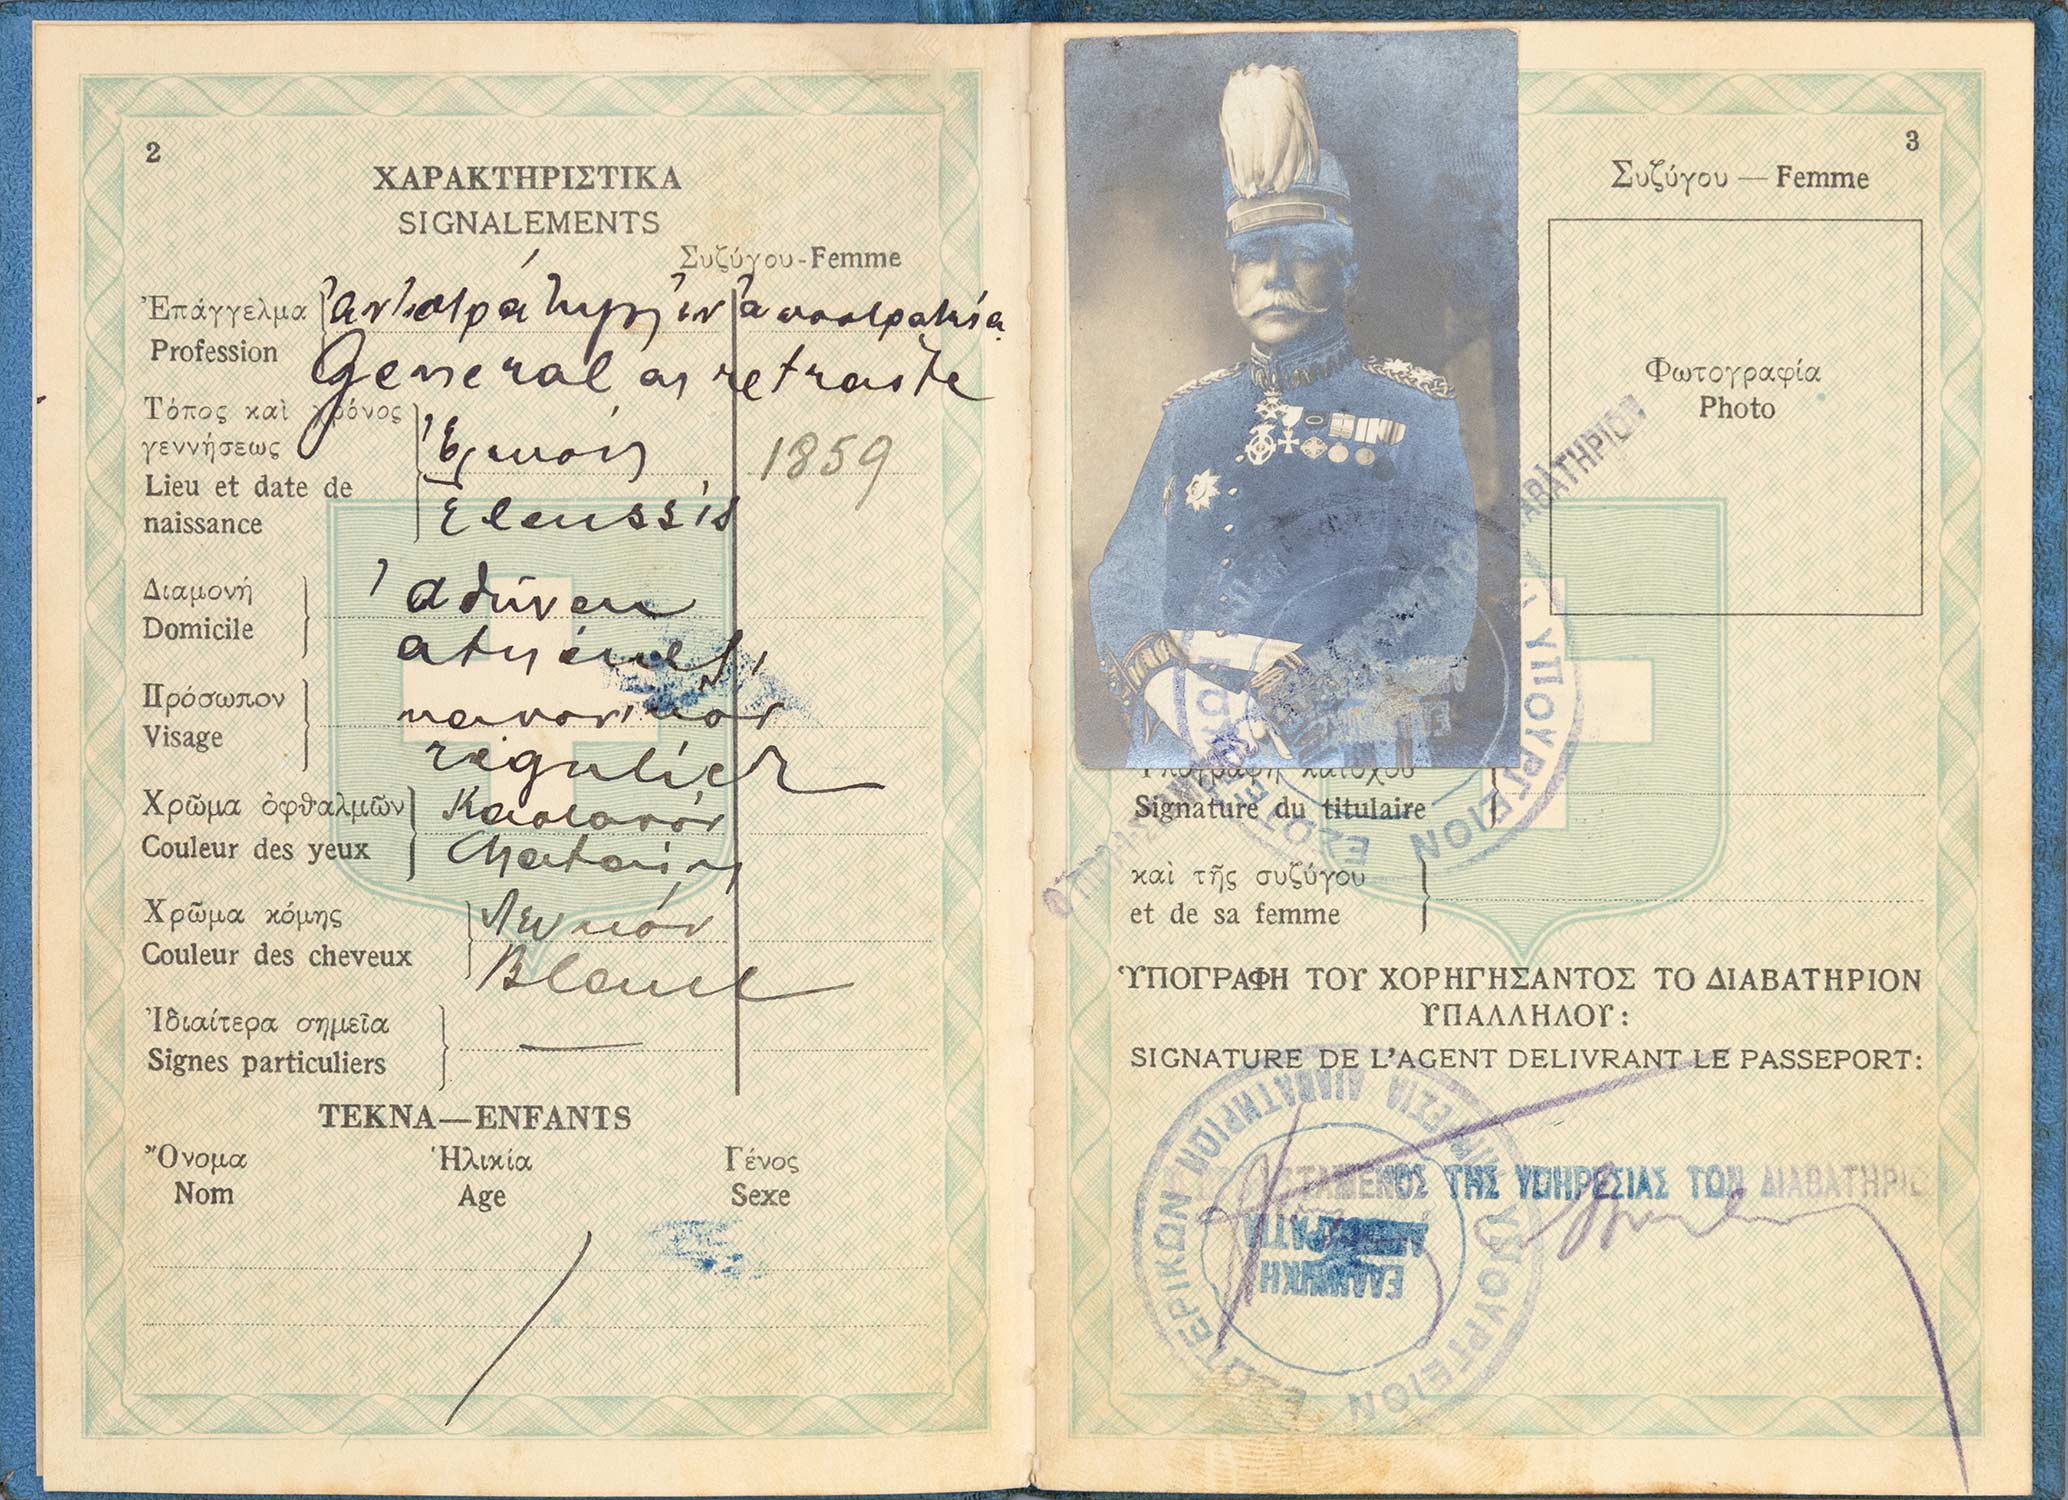 2
ΧΑΡΑΚΤΗΡΙΣΤΙΚΑ
SIGNALEMENTS
Συζύγου-Femme
Ἐπάγγελμα
Profession
ἀντιστράτηγος ἐν ἀποστρατεία
General en retraite
Τόπος καὶ χρόνος
γεννήσεως
Lieu et date de
naissance
1859
Eleussis
Διαμονή
Domicile
Ἀθήναι
Πρόσωπον
Visage
κανονικόν
régulier
Χρῶμα ὀφθαλμῶν
Couleur des yeux
Καστανόν
Chatain
Χρῶμα κόμης
Couleur des cheveux
Λευκόν
Blanc
Ἰδιαίτερα σημεῖα
Signes particuliers
ΤΕΚΝΑ—ENFANTS
Ὄνομα Ἡλικία Γένος
Nom Age Sexe
3
Συζύγου — Femme
Φωτογραφία
Photo
Ὑπογραφὴ κατόχου
Signature du titulaire
καὶ τῆς συζύγου
et de sa femme
ὙΠΟΓΡΑΦΗ ΤΟΥ ΧΟΡΗΓΗΣΑΝΤΟΣ ΤΟ ΔΙΑΒΑΤΗΡΙΟΝ
ΥΠΑΛΛΗΛΟΥ:
SIGNATURE DE L'AGENT DELIVRANT LE PASSEPORT:
ΤΗΣ ΥΠΗΡΕΣΙΑΣ ΤΩΝ ΔΙΑΒΑΤΗΡΙΩ
ΕΛΛΗΝΙΚΗ
ΔΗΜΟΚΡΑΤΙΑ
ΥΠΟΥΡΓΕΙΟΝ ΕΞΩΤΕΡΙΚΩΝ